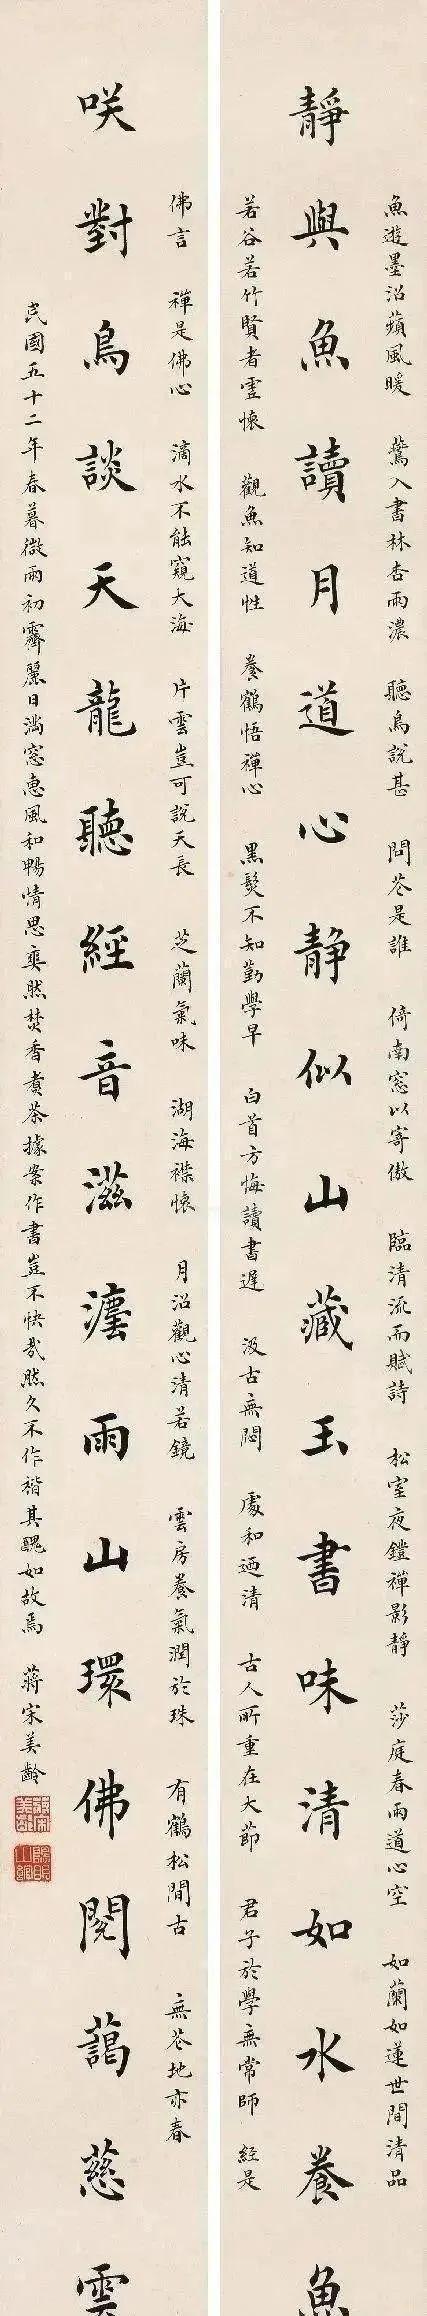 魚遊墨沼蘋風暖 鶯入書林杏雨濃 聽鳥說甚 問花是誰 倚南窗以寄傲 臨清流而賦詩 松室夜鐙禪影靜 莎庭春雨道心空 如蘭如蓮世間清品
靜與魚讀月道心靜似山藏玉書味清如水養魚
若谷若竹賢者虛懷 觀魚知道性 養鶴悟禪心 黑髮不知勤學早 白首方悔讀書遲 汲古無悶 處和迺清 古人所重在大節 君子於學無常師 經是
佛言 禪是佛心 滴水不能窺大海 片雲豈可說天長 芝蘭氣味 湖海襟懷 月沼觀心清若鏡 雲房養氣潤於珠 有鶴松間古 無花地亦春
咲對鳥談天龍聽經音滋灋雨山環佛閣藹慈雲
民國五十二年春暮微雨初霽麗日滿窗惠風和暢情思奕然焚香煮茶據案作書豈不快哉然久不作楷其醜如故焉 蔣宋美齡